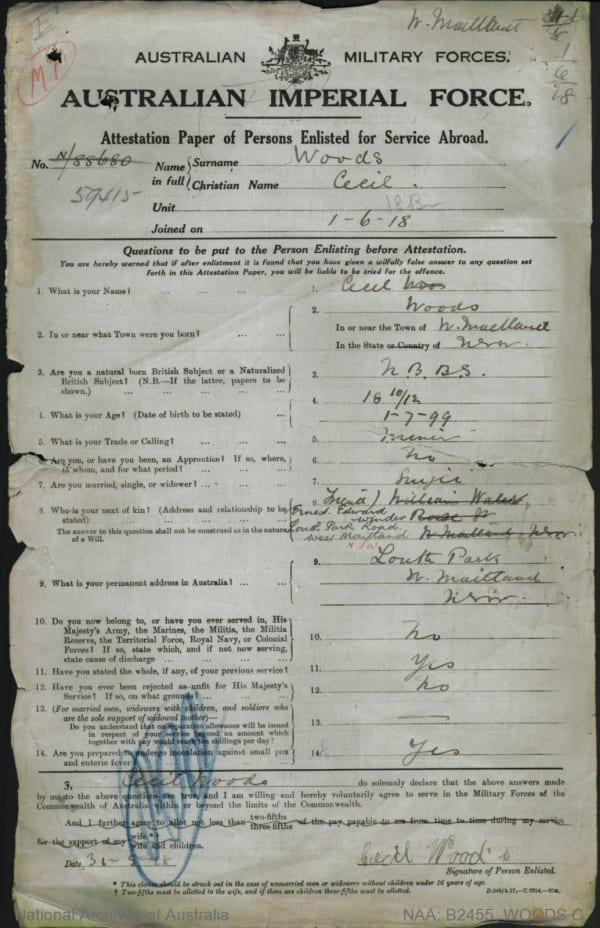 W. Maitland
1
6
18
MP
AUSTRALIAN MILITARY FORCES.
AUSTRALIAN IMPERIAL FORCE.
Attestation Paper of Persons Enlisted for Service Abroad.
No. N/88680 Name in full { Surname Woods
59415 Christian Name Cecil.
Unit 18
Joined on 1-6-18
Questions to be put to the Person Enlisting before Attestation.
You are hereby warned that if after enlistment it is found that you have given a wilfully false answer to any question set
forth in this Attestation Paper, you will be liable to be tried for the offence.
1. What is your Name? ... ... ... ... 1. Cecil
Woods
2. In or near what Town were you born? ... ... 2. In or near the Town of W. Maitland
In the State or Country of N.S.W.
3. Are you a natural born British Subject or a Naturalized
British Subject? (N.B.—If the latter, papers to be
shown.) ... ... ... ... 3. N. B. B.S.
4. What is your Age? (Date of birth to be stated) ... 4. 18 10/12
1-7-99
5. What is your Trade or Calling? ... ... ... 5. Miner
6. Are you, or have you been, an Apprentice? If so, where,
to whom, and for what period? ... ... ... 6. No
7. Are you married, single, or widower? ... ... 7. Single
8. Who is your next of kin? (Address and relationship to be
stated) ... ... ... ... 8. (Friend) William
Ernest Edward
St
Louth Park Road
West Maitland W. Maitland, N.S.W.
N.S.W.
The answer to this question shall not be construed as in the nature
of a Will.
9. What is your permanent address in Australia? ... ... 9. Louth Park
W. Maitland
N.S.W.
10. Do you now belong to, or have you ever served in, His
Majesty's Army, the Marines, the Militia, the Militia
Reserve, the Territorial Force, Royal Navy, or Colonial
Forces? If so, state which, and if not now serving,
state cause of discharge ... ... ... 10. No
11. Have you stated the whole, if any, of your previous service? 11. Yes
12. Have you ever been rejected as unfit for His Majesty's
Service? If so, on what grounds? ... ... 12. No
13. (For married men, widowers with children, and soldiers who
are the sole support of widowed mother)—
Do you understand that no separation allowance will be issued
in respect of beyond an amount which
together with pay would reach ten shillings per day? 13. —
14. Are you prepared to undergo inoculation against small pox
and enteric fever 14. Yes
I, Cecil Woods do solemnly declare that the above answers made
by me to the above questions are true, and I am willing and hereby voluntarily agree to serve in the Military Forces of the
Commonwealth of Australia within or beyond the limits of the Commonwealth.
And I further agree to allot not less than two-fifths three-fifths of the pay payable to me from time to time during my service
for the support of my wife. wife and children.
Date, 31-5-18 Cecil Woods
Signature of Person Enlisted.
* This clause should be struck out in the case of unmarried men or widowers without children under 16 years of age.
† Two-fifths must be allotted to the wife, and if there are children three-fifths must be allotted.
National Archives of Australia NAA: B2455, WOODS C